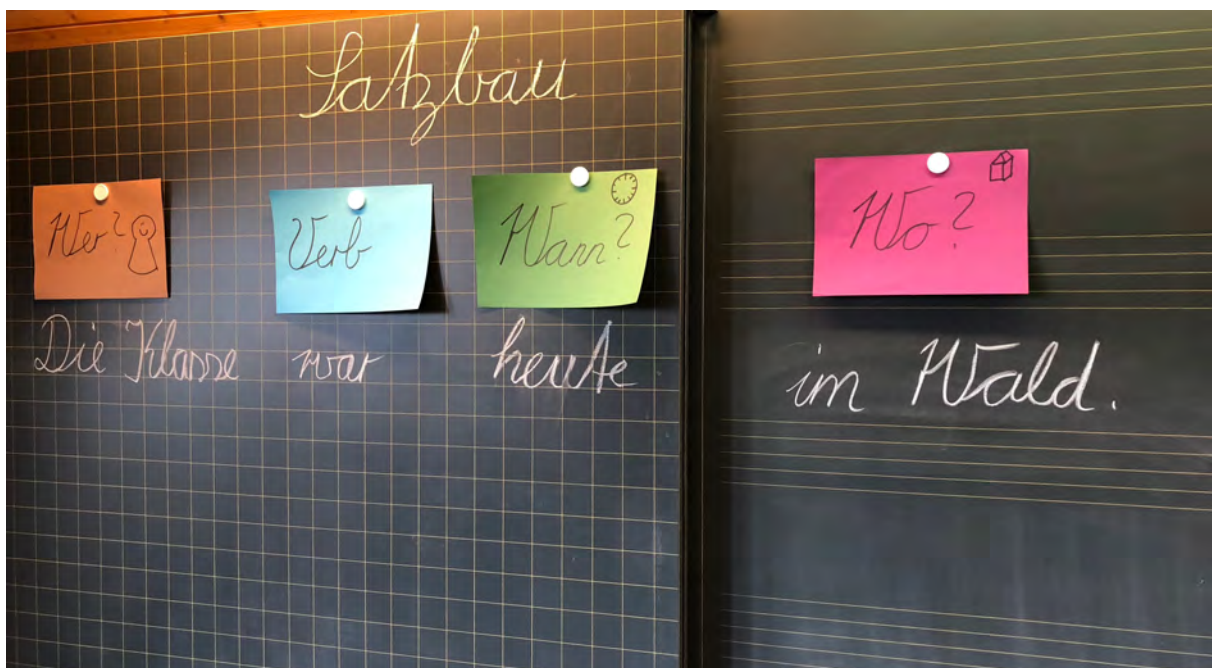 Satzbau
Wer? Verb Wann? Wo?
Die Klasse war heute im Wald.